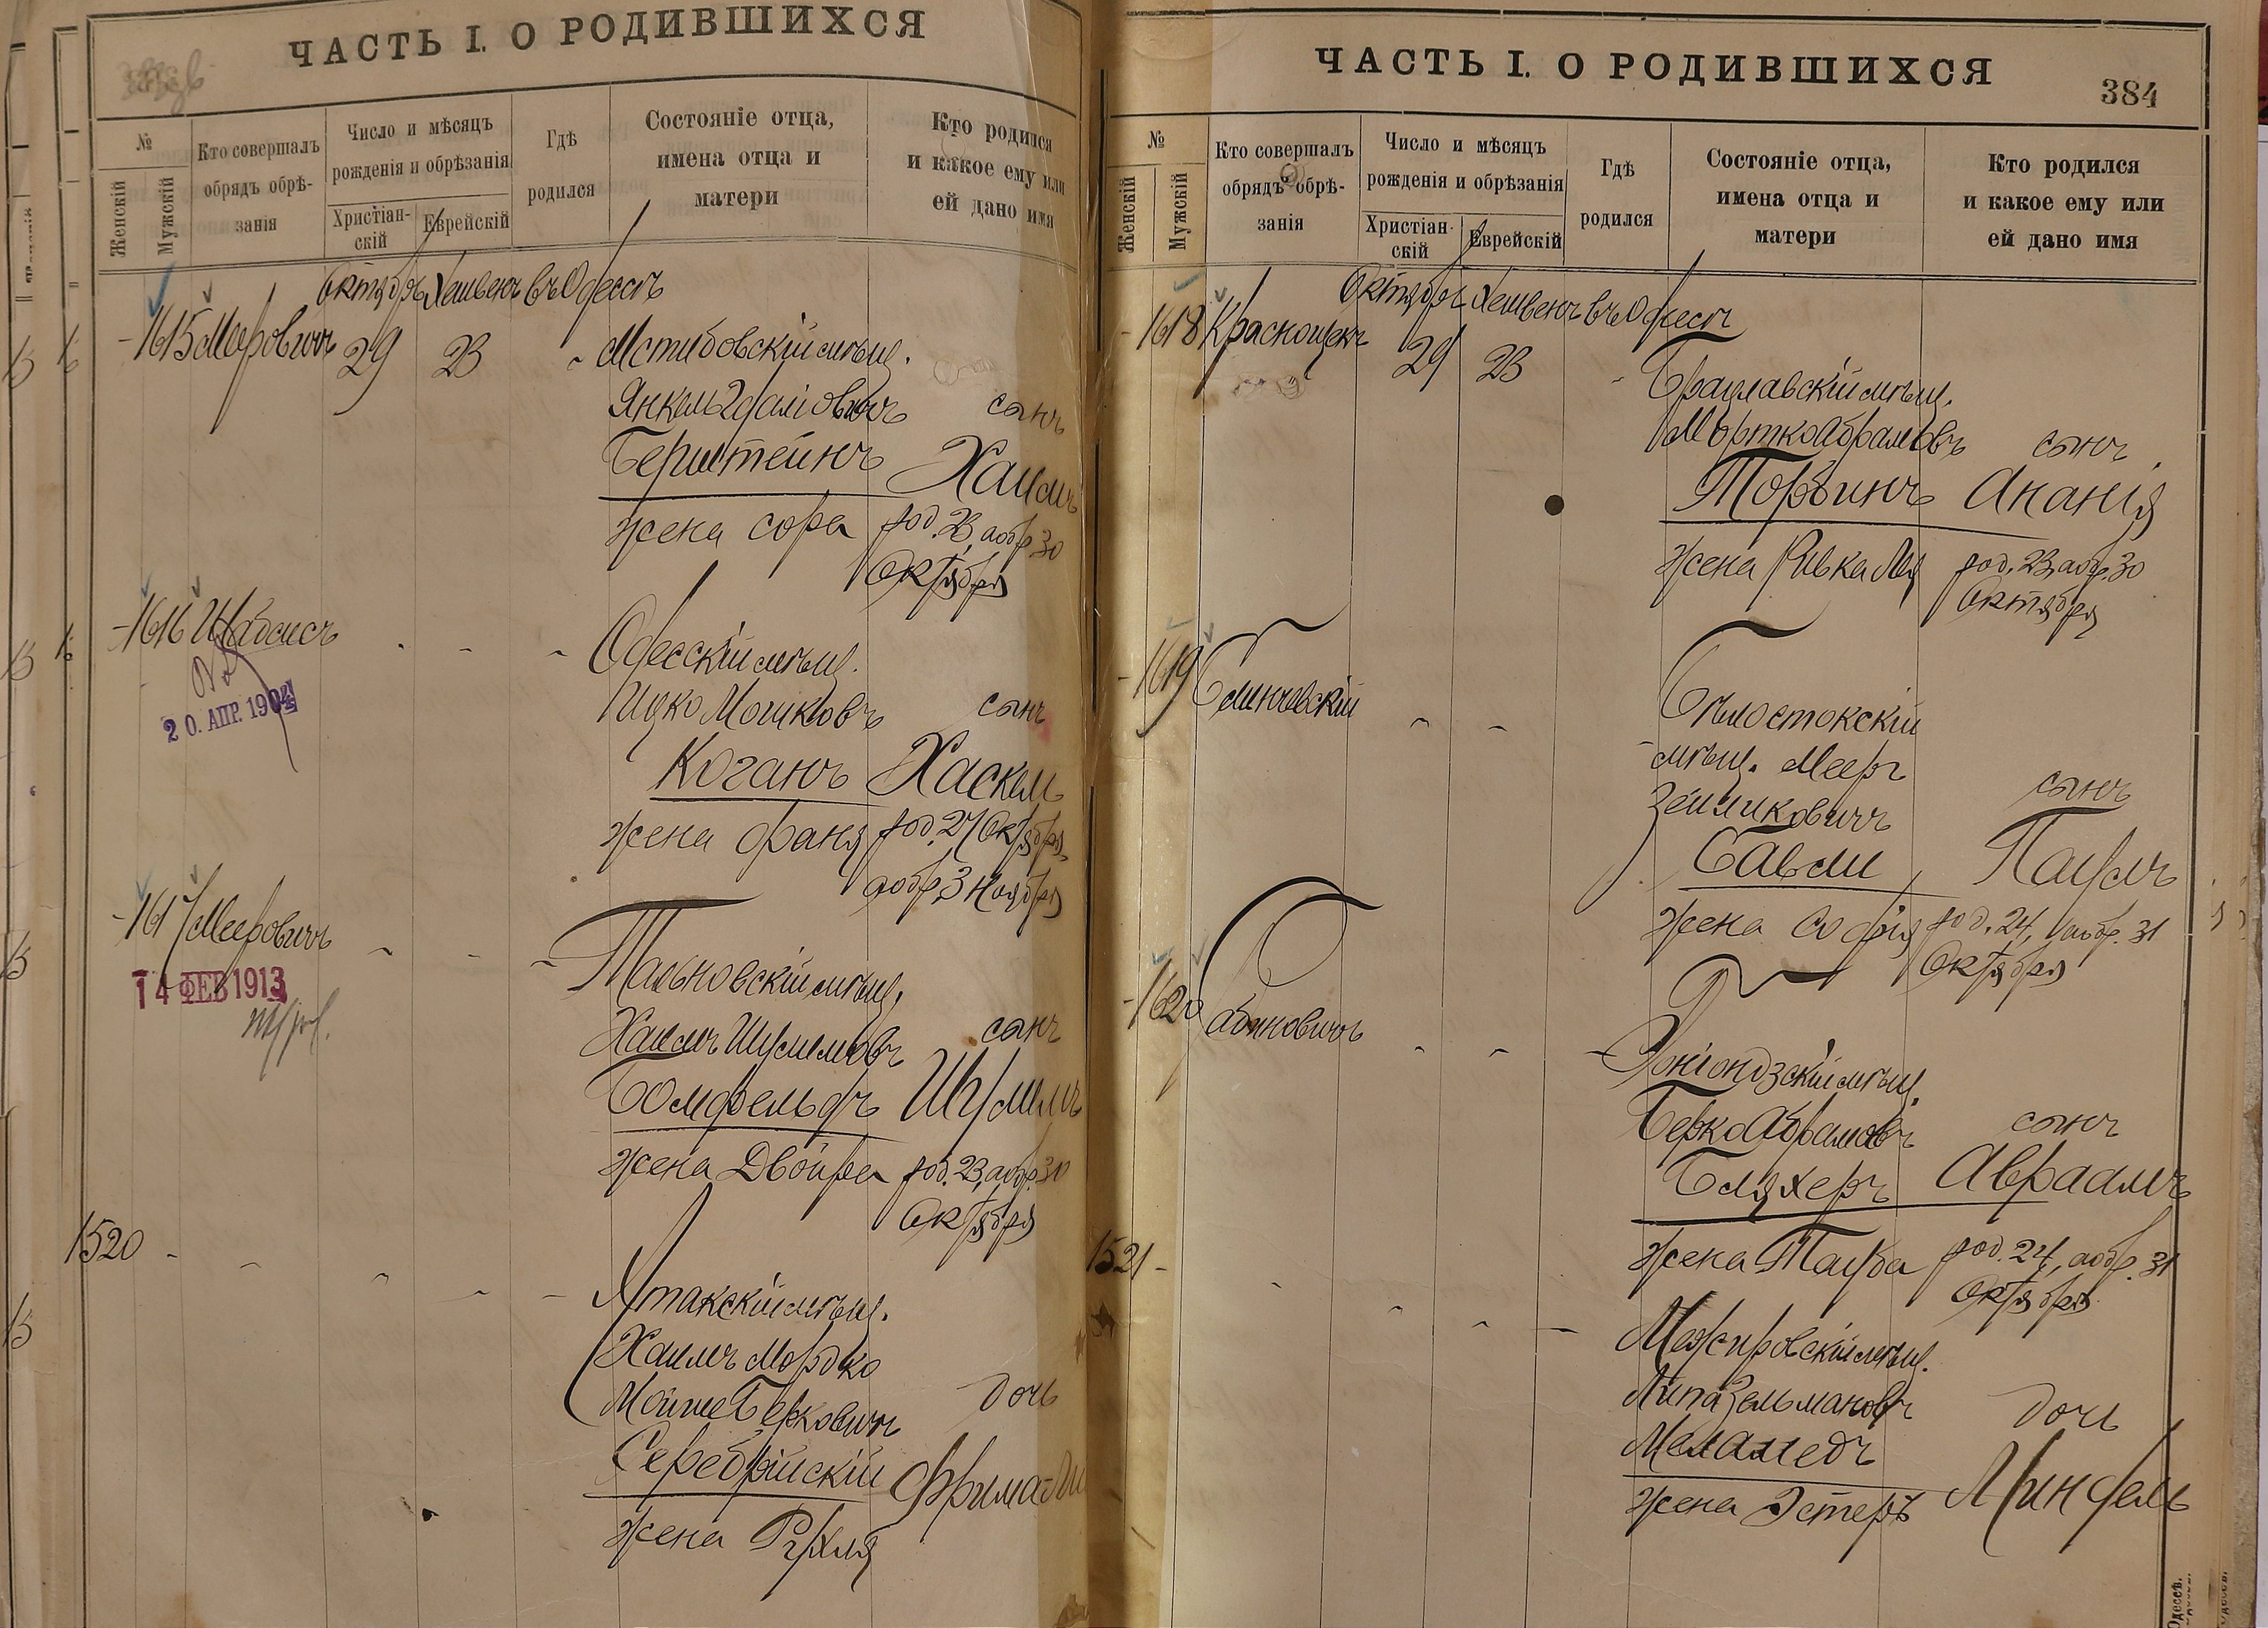 ЧАСТЬ I. О РОДИВШИХСЯ
№
Женскій
Мужскій
Кто совершалъ
обрядъ обрѣ-
занія
Число и мѣсяцъ
рожденія и обрѣзанія
Христіан-
скій
Еврейскій
Гдѣ
родился
Состояніе отца,
имена отца и
матери
Кто родился
и какое ему или
ей дано имя
Октябрь Хешвенъ въ Одессѣ
1615 Мееровичъ 29 23 Мстибовскій мѣщ.
Янкель Гдаліовичъ сынъ
Берштейнъ Хаимъ
жена Сора род. 23, а обр. 30
Октября
1616 Шабсисъ Одесскій мѣщ.
20. АПР. 1904
Ицко Мошковъ сынъ
Коганъ Хаскель
жена Франя род. 27 Октября,
а обр. 3 Ноября
1617 Мееровичъ Тальновскій мѣщ.
14 ФЕВ 1913
Хаимъ Шулимовъ сынъ
Бомфельдъ Шулимъ
жена Двойра род. 23, а обр. 30
Октября
1520 Ятакскій мѣщ.
Хаимъ Мордко
Мойше Берковичъ дочь
Серебрійскій Фрима-
жена Рухля
ЧАСТЬ I. О РОДИВШИХСЯ
384
№
Женскій
Мужскій
Кто совершалъ
обрядъ обрѣ-
занія
Число и мѣсяцъ
рожденія и обрѣзанія
Христіан-
скій
Еврейскій
Гдѣ
родился
Состояніе отца,
имена отца и
матери
Кто родился
и какое ему или
ей дано имя
Октябрь Хешвенъ въ Одессѣ
1618 Краснощекъ 29 23 Брацлавскій мѣщ.
Мортко Абрамовъ сынъ
Торбинъ Ананія
жена Ривка Лея род. 23, а обр. 30
Октября
1619 Блинчевскій Бѣлостокскій
мѣщ. Мееръ
Зейликовичъ сынъ
Бавли Паумъ
жена Софія род. 24, а обр. 31
Октября
1620 Рабиновичъ Гоніондзскій мѣщ.
Берко Абрамовъ сынъ
Бляхеръ Авраамъ
жена Тауба род. 24, а обр. 31
Октября
1521 Межировскій мѣщ.
Липа Зельмановъ дочь
Меламедъ Миндель
жена Эстеръ